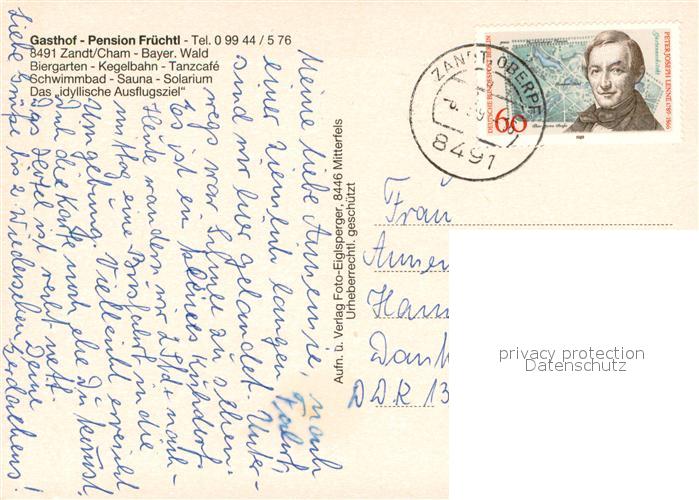 Gasthof - Pension Früchtl - Tel. 0 99 44 / 5 76
8491 Zandt/Cham - Bayer. Wald
Biergarten - Kegelbahn - Tanzcafé
Schwimmbad - Sauna - Solarium
Das „idyllische Ausflugsziel“
Meine liebe Annemie, nach
einer ziemlich langen Fahrt
sind wir hier gelandet. Unter-
wegs war Schnee zu sehen.
Es ist ein kleines Kuhdorf.
Heute wandern wir 2 Std + nach-
mittag eine Busfahrt in die
Umgebung. Vielleicht erreicht
Dich die Karte noch ehe Du kommst.
Das Hotel ist recht nett.
Deine
Liebe Grüße bis z. Wiedersehen
Aufn. u. Verlag Foto-Eiglsperger, 8446 Mitterfels
Urheberrechtl. geschützt
ZANDT, OBERPF
8491
DEUTSCHE BUNDESPOST BERLIN
60
PETER JOSEPH LENNÉ 1789-1866
1989
Frau
DDR 13
privacy protection
Datenschutz